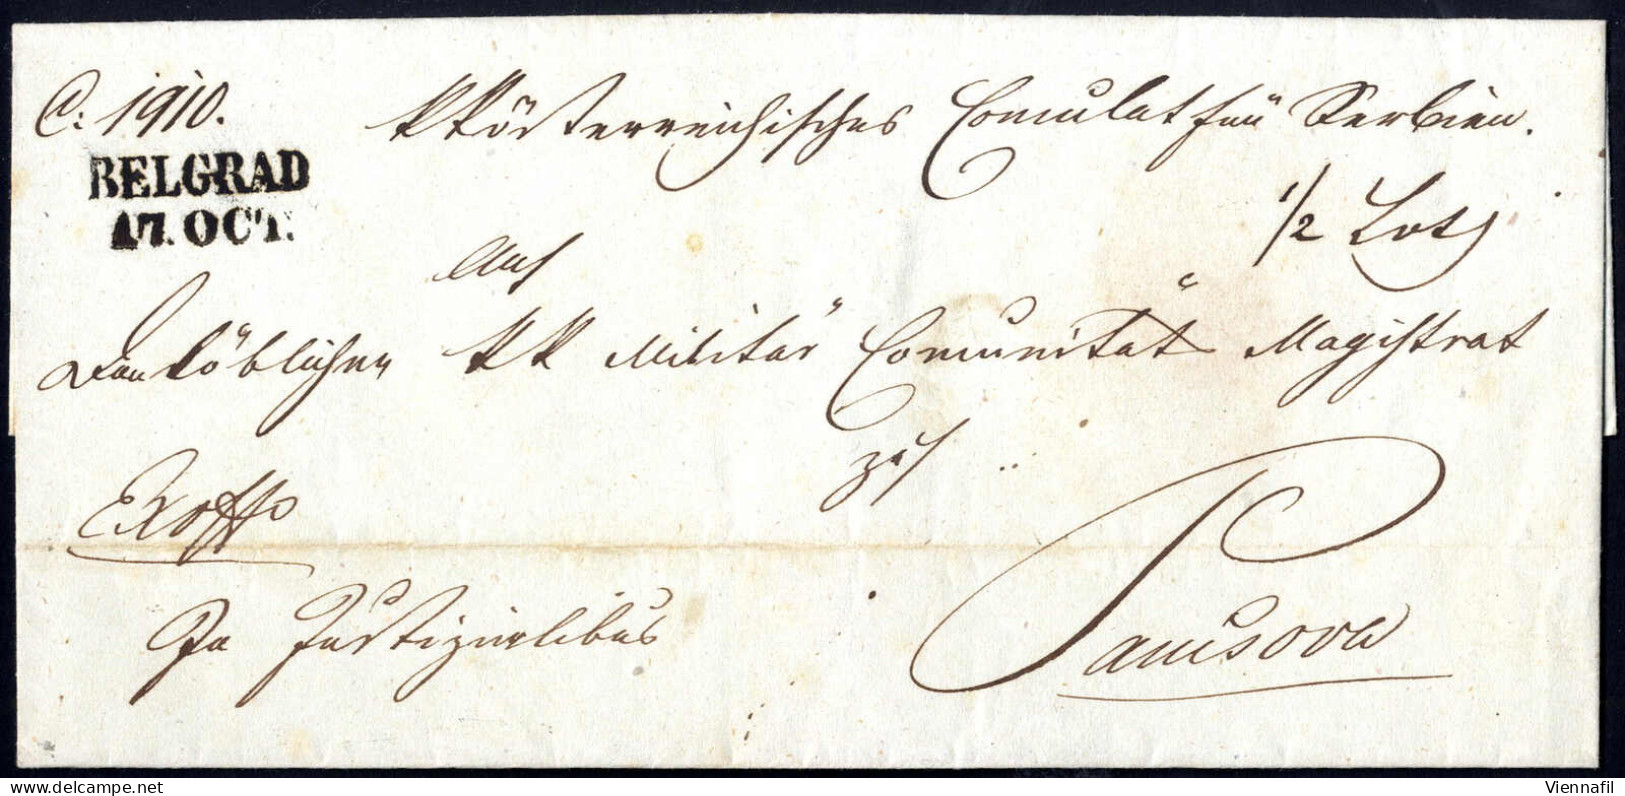 C: 1910. kk österreichisches Consulat für Serbien.
BELGRAD
17. OCT.
1/2 Loth
An
Den löblichen kk Militär Comunitäts Magistrat
zu
Exoffo
In Justizialibus
Pancsova
Viennafil